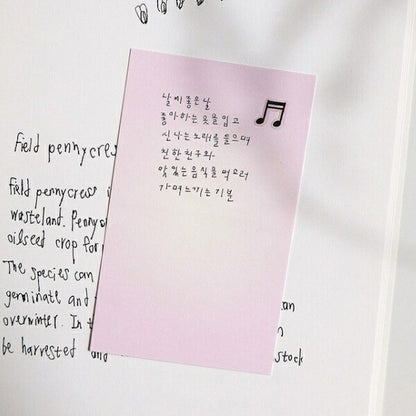 Field pennycress
날씨 좋은 날
좋아하는 옷을 입고
신나는 노래를 들으며
친한 친구와
맛있는 음식을 먹으러
가며 느끼는 기분
Field pennycress
wasteland. Penny
oilseed crop for
The species can
germinate and
overwinter. In
be harvested and stock